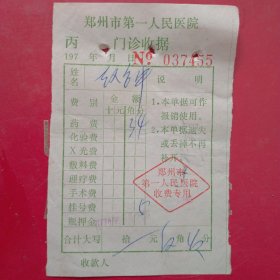 郑州市第一人民医院
丙 门诊收据
197 年 月 日 № 037455
姓名 说明
费别 金额 1.本单据可作
十元角分 报销使用。
药费 34 2.本单据遗失
化验费 或丢掉不再
X光费
敷料费
理疗费 郑州市
手术费 第一人民医院
挂号费 收费专用
瓶押金 5
合计大写 拾 元 角 分
收款人